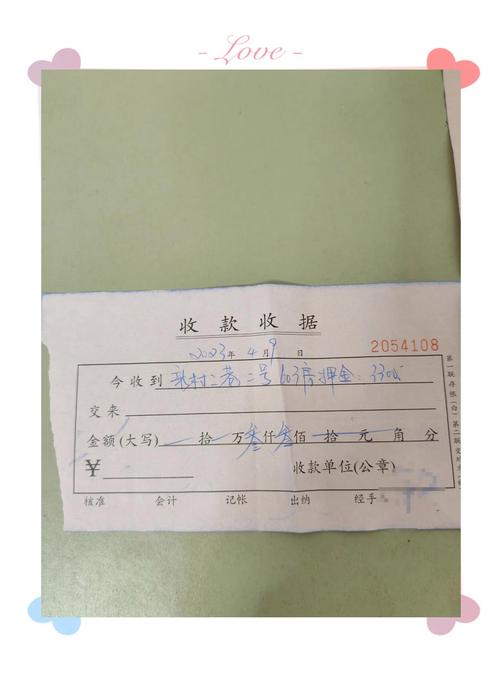 - Love -
收款收据
2023年 4月 9日 2054108
今收到 新村二巷二号603房押金:3300
交来
金额(大写) 拾 万叁仟叁佰 拾 元 角 分
¥ 收款单位(公章)
核准 会计 记帐 出纳 经手
第一联存根(白) 第二联